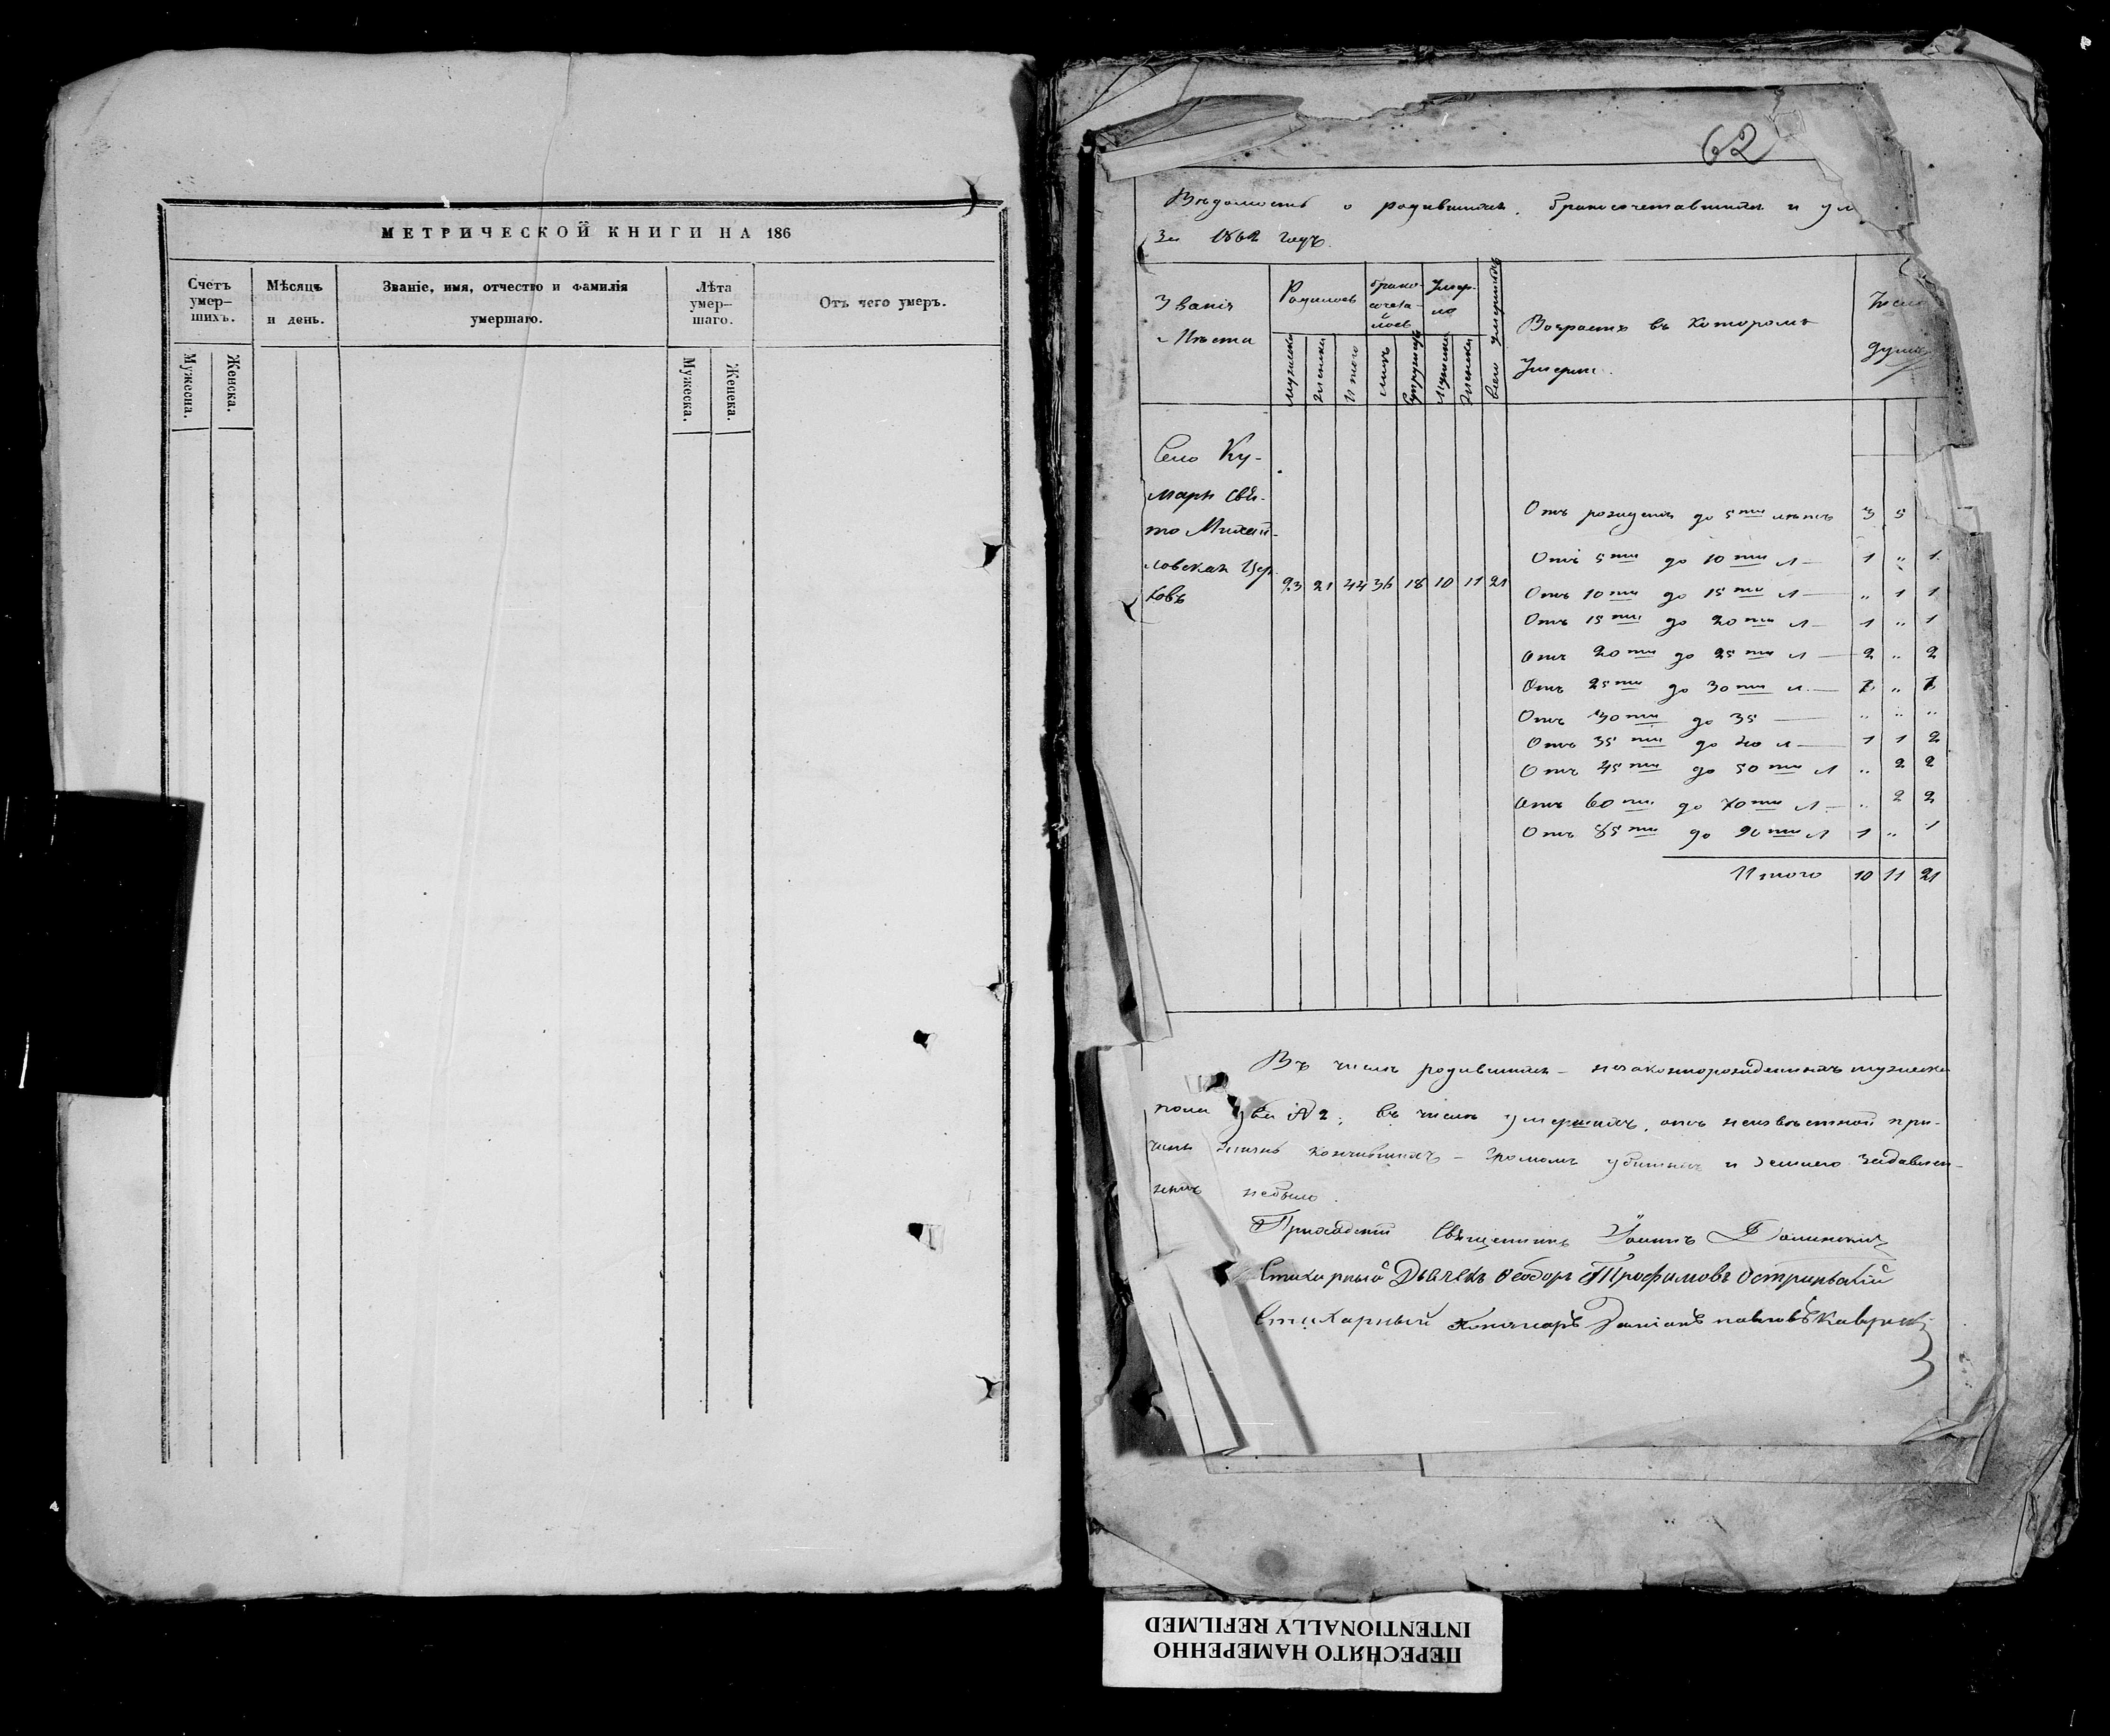 МЕТРИЧЕСКОЙ КНИГИ НА 186
Счетъ умер-шихъ.
Мужеска.
Женска.
Мѣсяцъ и день.
Званіе, имя, отчество и фамилія умершаго.
Лѣта умер-шаго.
Мужеска.
Женска.
Отъ чего умеръ.
62
Вѣдомость о родившихся, бракосочетавшихся и ум
За 1862 годъ.
Званія Мѣста
Родилось
Бракосочета-лось
Умер-ло
Всего умершихъ
Возрастъ въ которомъ Умерли.
Число душъ
мужеска
женска
Итого
лицъ
супружествъ
мужеска
женска
Село Ку-
мары Свя-
то Михай-
ловская Цер-
ковь
23 21 44 36 18 10 11 21
Отъ рожденія до 5ти лѣтъ 3 5
Отъ 5ти до 10ти л — 1 „ 1
Отъ 10ти до 15ти л — „ 1 1
Отъ 15ти до 20ти л — 1 „ 1
Отъ 20ти до 25ти л — 2 „ 2
Отъ 25ти до 30ти л — 1 „ 1
Отъ 30ти до 35 — „ „ „
Отъ 35ти до 40 л — 1 1 2
Отъ 45ти до 50ти л „ 2 2
Отъ 60ти до 70ти л — „ 2 2
Отъ 85ти до 90ти л 1 „ 1
Итого 10 11 21
Въ числѣ родившихся — незаконнорожденныхъ мужеска
пола два № 2; въ числѣ умершихъ, отъ неизвѣстной при-
чины жизнь кончившихъ — громомъ убитыхъ и землею задавлен-
ныхъ небыло.
Приходскій Священникъ Іоаннъ
Стихарный Дьячекъ Феодоръ Трофимовъ Острянскій
Стихарный Пономарь Даміанъ Павловъ
ПЕРЕСНЯТО НАМЕРЕННО
INTENTIONALLY REFILMED